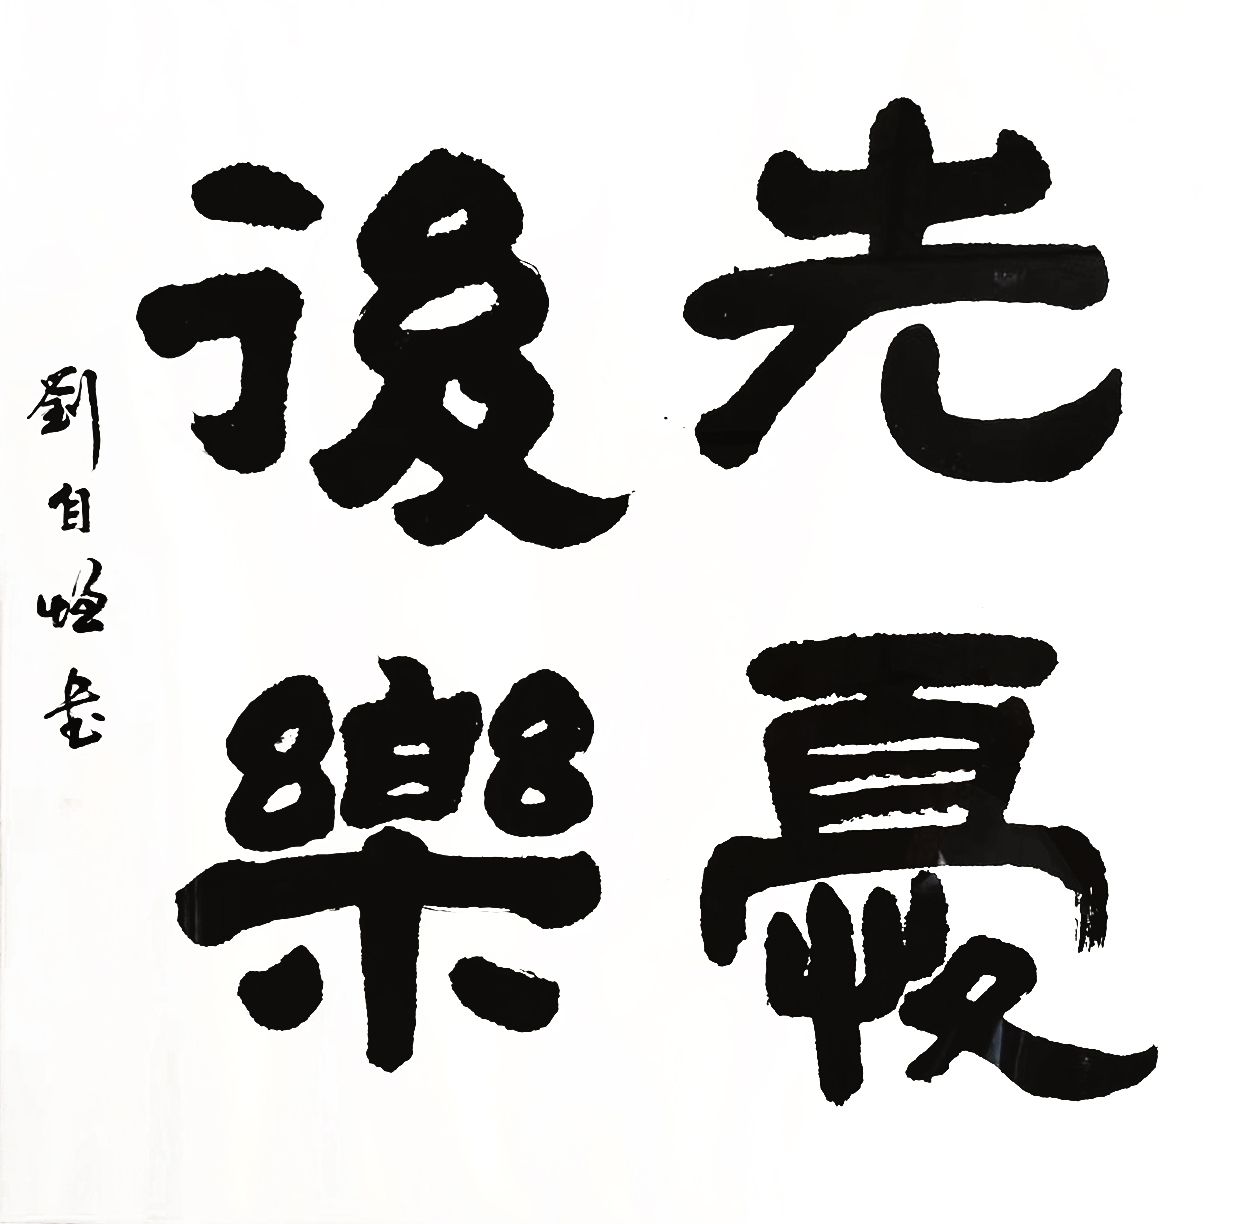 先憂
後樂
劉自犢書